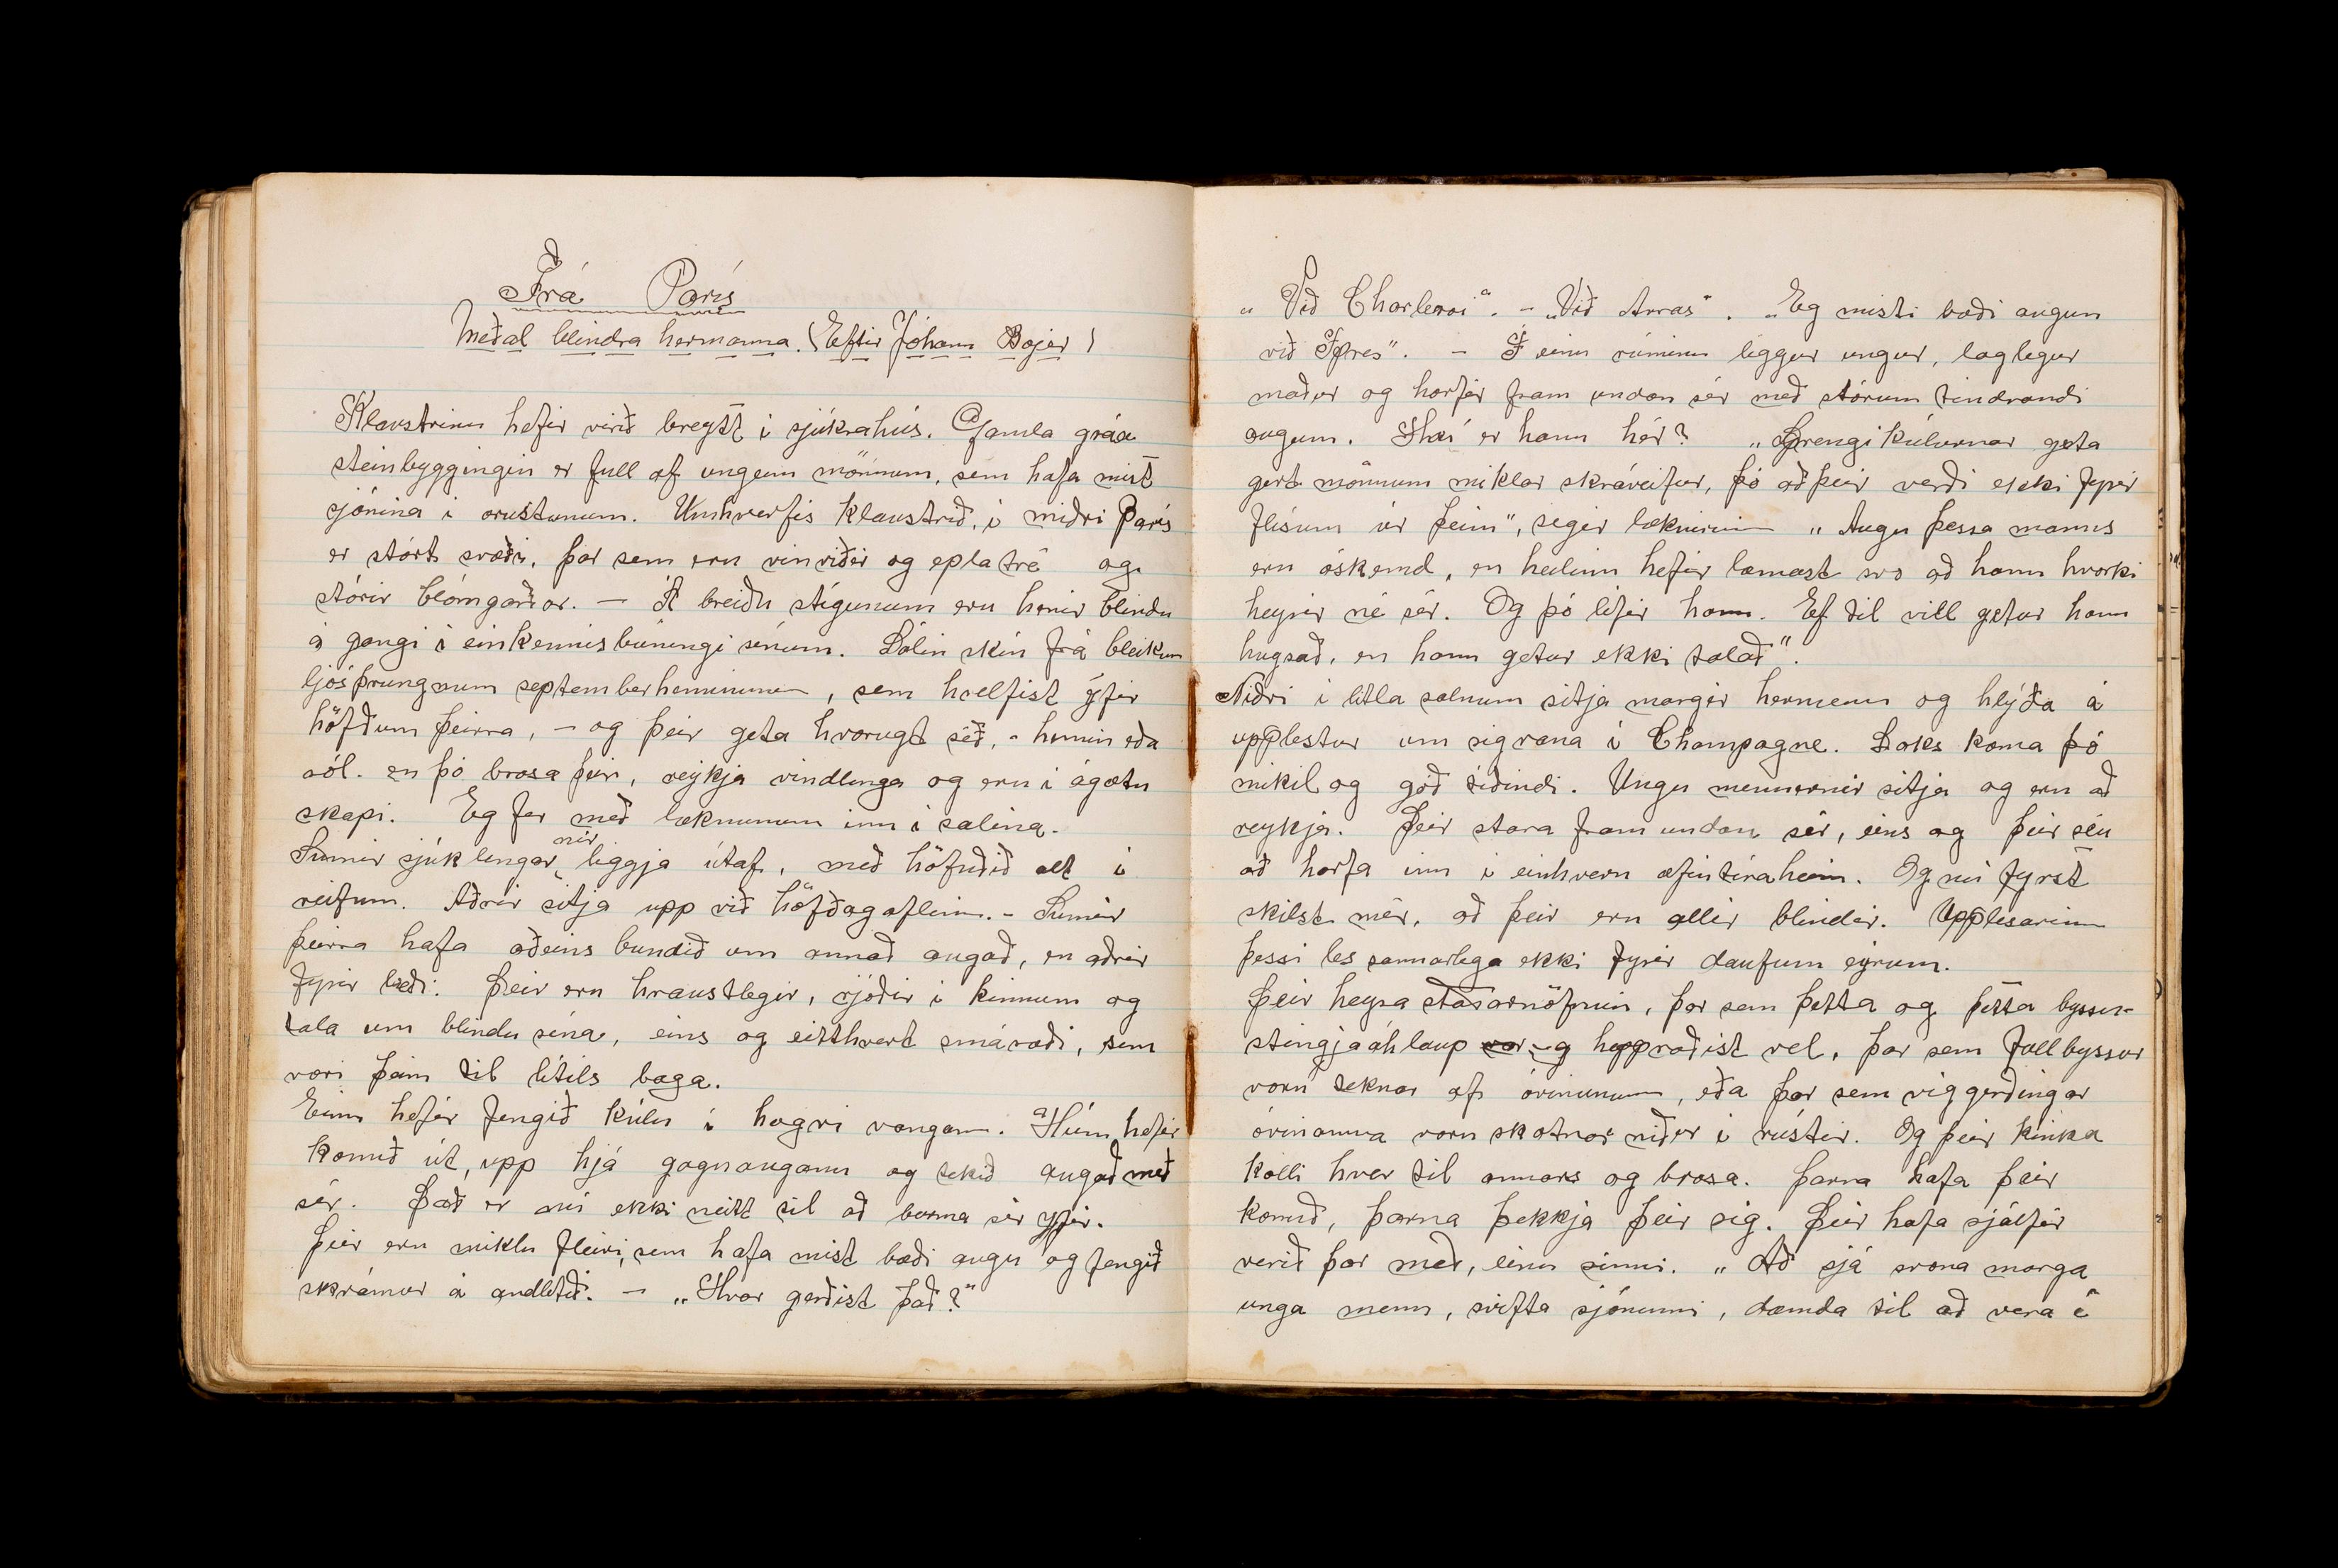 Frá París
Meðal blindra hermanna. (Eftir Jóhann Bojer)
Klaustrinu hefir verið breytt í sjúkrahús. Gamla gráa
steinbyggingin er full af ungum mönnum, sem hafa mist
sjónina í orustunum. Umhverfis klaustrið, í miðri París
er stórt svæði, þar sem eru vinviðir og eplatré og
stórir blómgarðar. — Á breiðu stígunum eru hinir blindu
á gangi í einkennisbúningi sínum. Sólin skín frá bleikum
ljósþrungnum septemberhimninum, sem hvelfist yfir
höfðum þeirra, — og þeir geta hvorugt séð, - himin eða
sól. en þó brosa þeir, reykja vindlinga og eru í ágætu
skapi. Eg fer með læknunum inn í salina.
Sumir sjúklingarnir liggja útaf, með höfuðið alt í
reifum. Aðrir sitja upp við höfðagaflinn. - Sumir
þeirra hafa aðeins bundið um annað augað, en aðrir
fyrir bæði. Þeir eru hraustlegir, rjóðir í kinnum og
tala um blindu sína, eins og eitthvert smáræði, sem
væri þeim til lítils baga.
Einn hefir fengið kúlu í hægri vangann. Hún hefir
komið út, upp hjá gagnauganu og tekið augað með
sér. Það er nú ekki neitt til að barma sér yfir.
Þeir eru miklu fleiri, sem hafa mist bæði augu og fengið
skrámur á andlitið. — „Hvar gerðist það?"
„Við Charleroi". - „Við Arras". „Eg misti bæði augun
við Ypres". - Í einu rúminu liggur ungur, laglegur
maður og horfir fram undan sér með stórum tindrandi
augum. Því er hann hér? „Sprengikúlurnar geta
gert mönnum miklar skráveifur, þó að þeir verði ekki fyrir
flísum úr þeim", segir læknirinn „Augu þessa manns
eru óskemd, en heilinn hefir lamast svo að hann hvorki
heyrir né sér. Og þó lifir hann. Ef til vill getur hann
hugsað, en hann getur ekki talað".
Niðri í litla salnum sitja margir hermenn og hlýða á
upplestur um sigrana í Champagne. Loks koma þó
mikil og góð tíðindi. Ungu mennirnir sitja og eru að
reykja. Þeir stara fram undan sér, eins og þeir séu
að horfa inn í einhvern æfintíraheim. Og nú fyrst
skilst mér, að þeir eru allir blindir. Upplesarinn
þessi les sannarlega ekki fyrir daufum eyrum.
Þeir heyra staðarnöfnin, þar sem þetta og þetta byssu-
stingjaáhlaup var og heppnaðist vel, þar sem fallbyssur
voru teknar af óvinunum, eða þar sem víggerðingar
óvinanna voru skotnar niður í rústir. Og þeir kinka
kolli hver til annars og brosa. Þarna hafa þeir
komið, þarna þekkja þeir sig. Þeir hafa sjálfir
verið þar með, einu sinni. „Að sjá svona marga
unga menn, svifta sjóninni, dæmda til að vera í